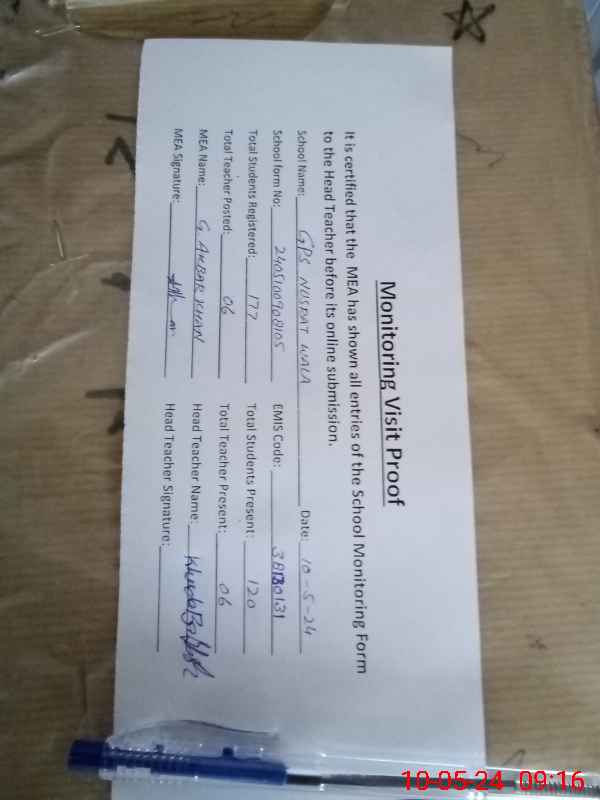 Monitoring Visit Proof
It is certified that the MEA has shown all entries of the School Monitoring Form
to the Head Teacher before its online submission.
School Name: GPS NUSRAT WALA Date: 10-5-24
School form No: 2405100908105 EMIS Code: 38130131
Total Students Registered: 177 Total Students Present: 120
Total Teacher Posted: 06 Total Teacher Present: 06
MEA Name: G. AKBAR KHAN Head Teacher Name: Khuda Bakhsh
MEA Signature: Head Teacher Signature:
10-05-24 09:16